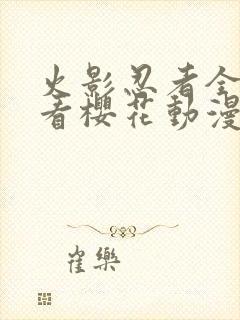 火影忍者全
看櫻花動漫
崔樂